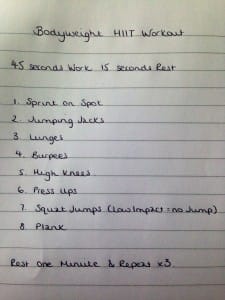 Bodyweight HIIT Workout
45 seconds Work 15 seconds Rest
1. Sprint on Spot
2. Jumping Jacks
3. Lunges
4. Burpees
5. High Knees
6. Press Ups
7. Squat Jumps (Low Impact = no Jump)
8. Plank
Rest One Minute & Repeat x3